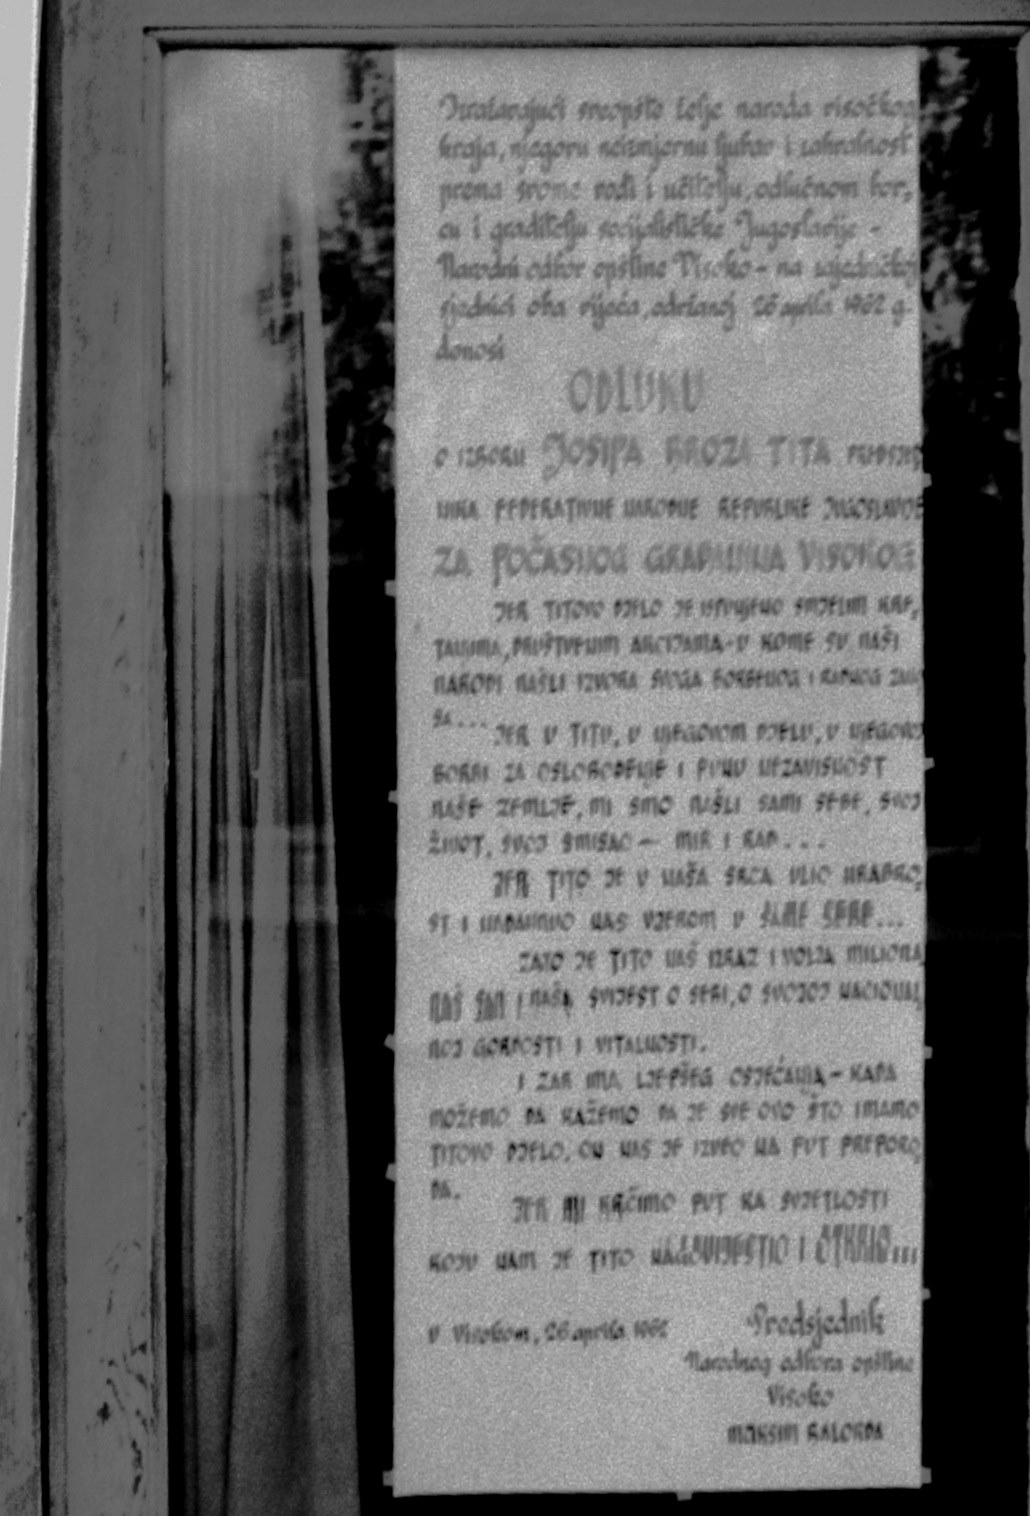 Izražavajući sveopšte želje naroda visočkog
kraja, njegovu neizmjernu ljubav i zahvalnost
prema svome vođi i učitelju, odlučnom bor,
cu i graditelju socijalističke Jugoslavije -
Narodni odbor opštine Visoko - na zajedničkoj
sjednici oba vijeća, održanoj 26 aprila 1962 g.
donosi
ODLUKU
O IZBORU JOSIPA BROZA TITA PREDSJED
NIKA FEDERATIVNE NARODNE REPUBLIKE JUGOSLAVIJE
ZA POČASNOG GRAĐANINA VISOKOG
JER TITOVO DJELO JE ISPUNJENO SMJELIM KRE,
TANJIMA, DRUŠTVENIM AKCIJAMA - U KOME SU NAŠI
NARODI NAŠLI IZVORA SVOGA BORBENOG I RADNOG ZANO
SA...
JER U TITU, U NJEGOVOM DJELU, U NJEGOVOJ
BORBI ZA OSLOBOĐENJE I PUNU NEZAVISNOST
NAŠE ZEMLJE, MI SMO NAŠLI SAMI SEBE, SVOJ
ŽIVOT, SVOJ SMISAO - MIR I RAD...
JER TITO JE U NAŠA SRCA ULIO HRABRO,
ST I NADAHNUO NAS VJEROM U SAME SEBE...
ZATO JE TITO NAŠ IZRAZ I VOLJA MILIONA,
NAŠ SAN I NAŠA SVIJEST O SEBI, O SVOJOJ NACIONAL,
NOJ GORDOSTI I VITALNOSTI.
I ZAR IMA LJEPŠEG OSJEĆANJA - KADA
MOŽEMO DA KAŽEMO DA JE SVE OVO ŠTO IMAMO
TITOVO DJELO, ON NAS JE IZVEO NA PUT PREPORO,
DA.
JER MI KRČIMO PUT KA SVJETLOSTI
KOJU NAM JE TITO NAGOVIJESTIO I OTKRIO...
U Visokom, 26 aprila 1962
Predsjednik
Narodnog odbora opštine
Visoko
MAKSIM BALORDA